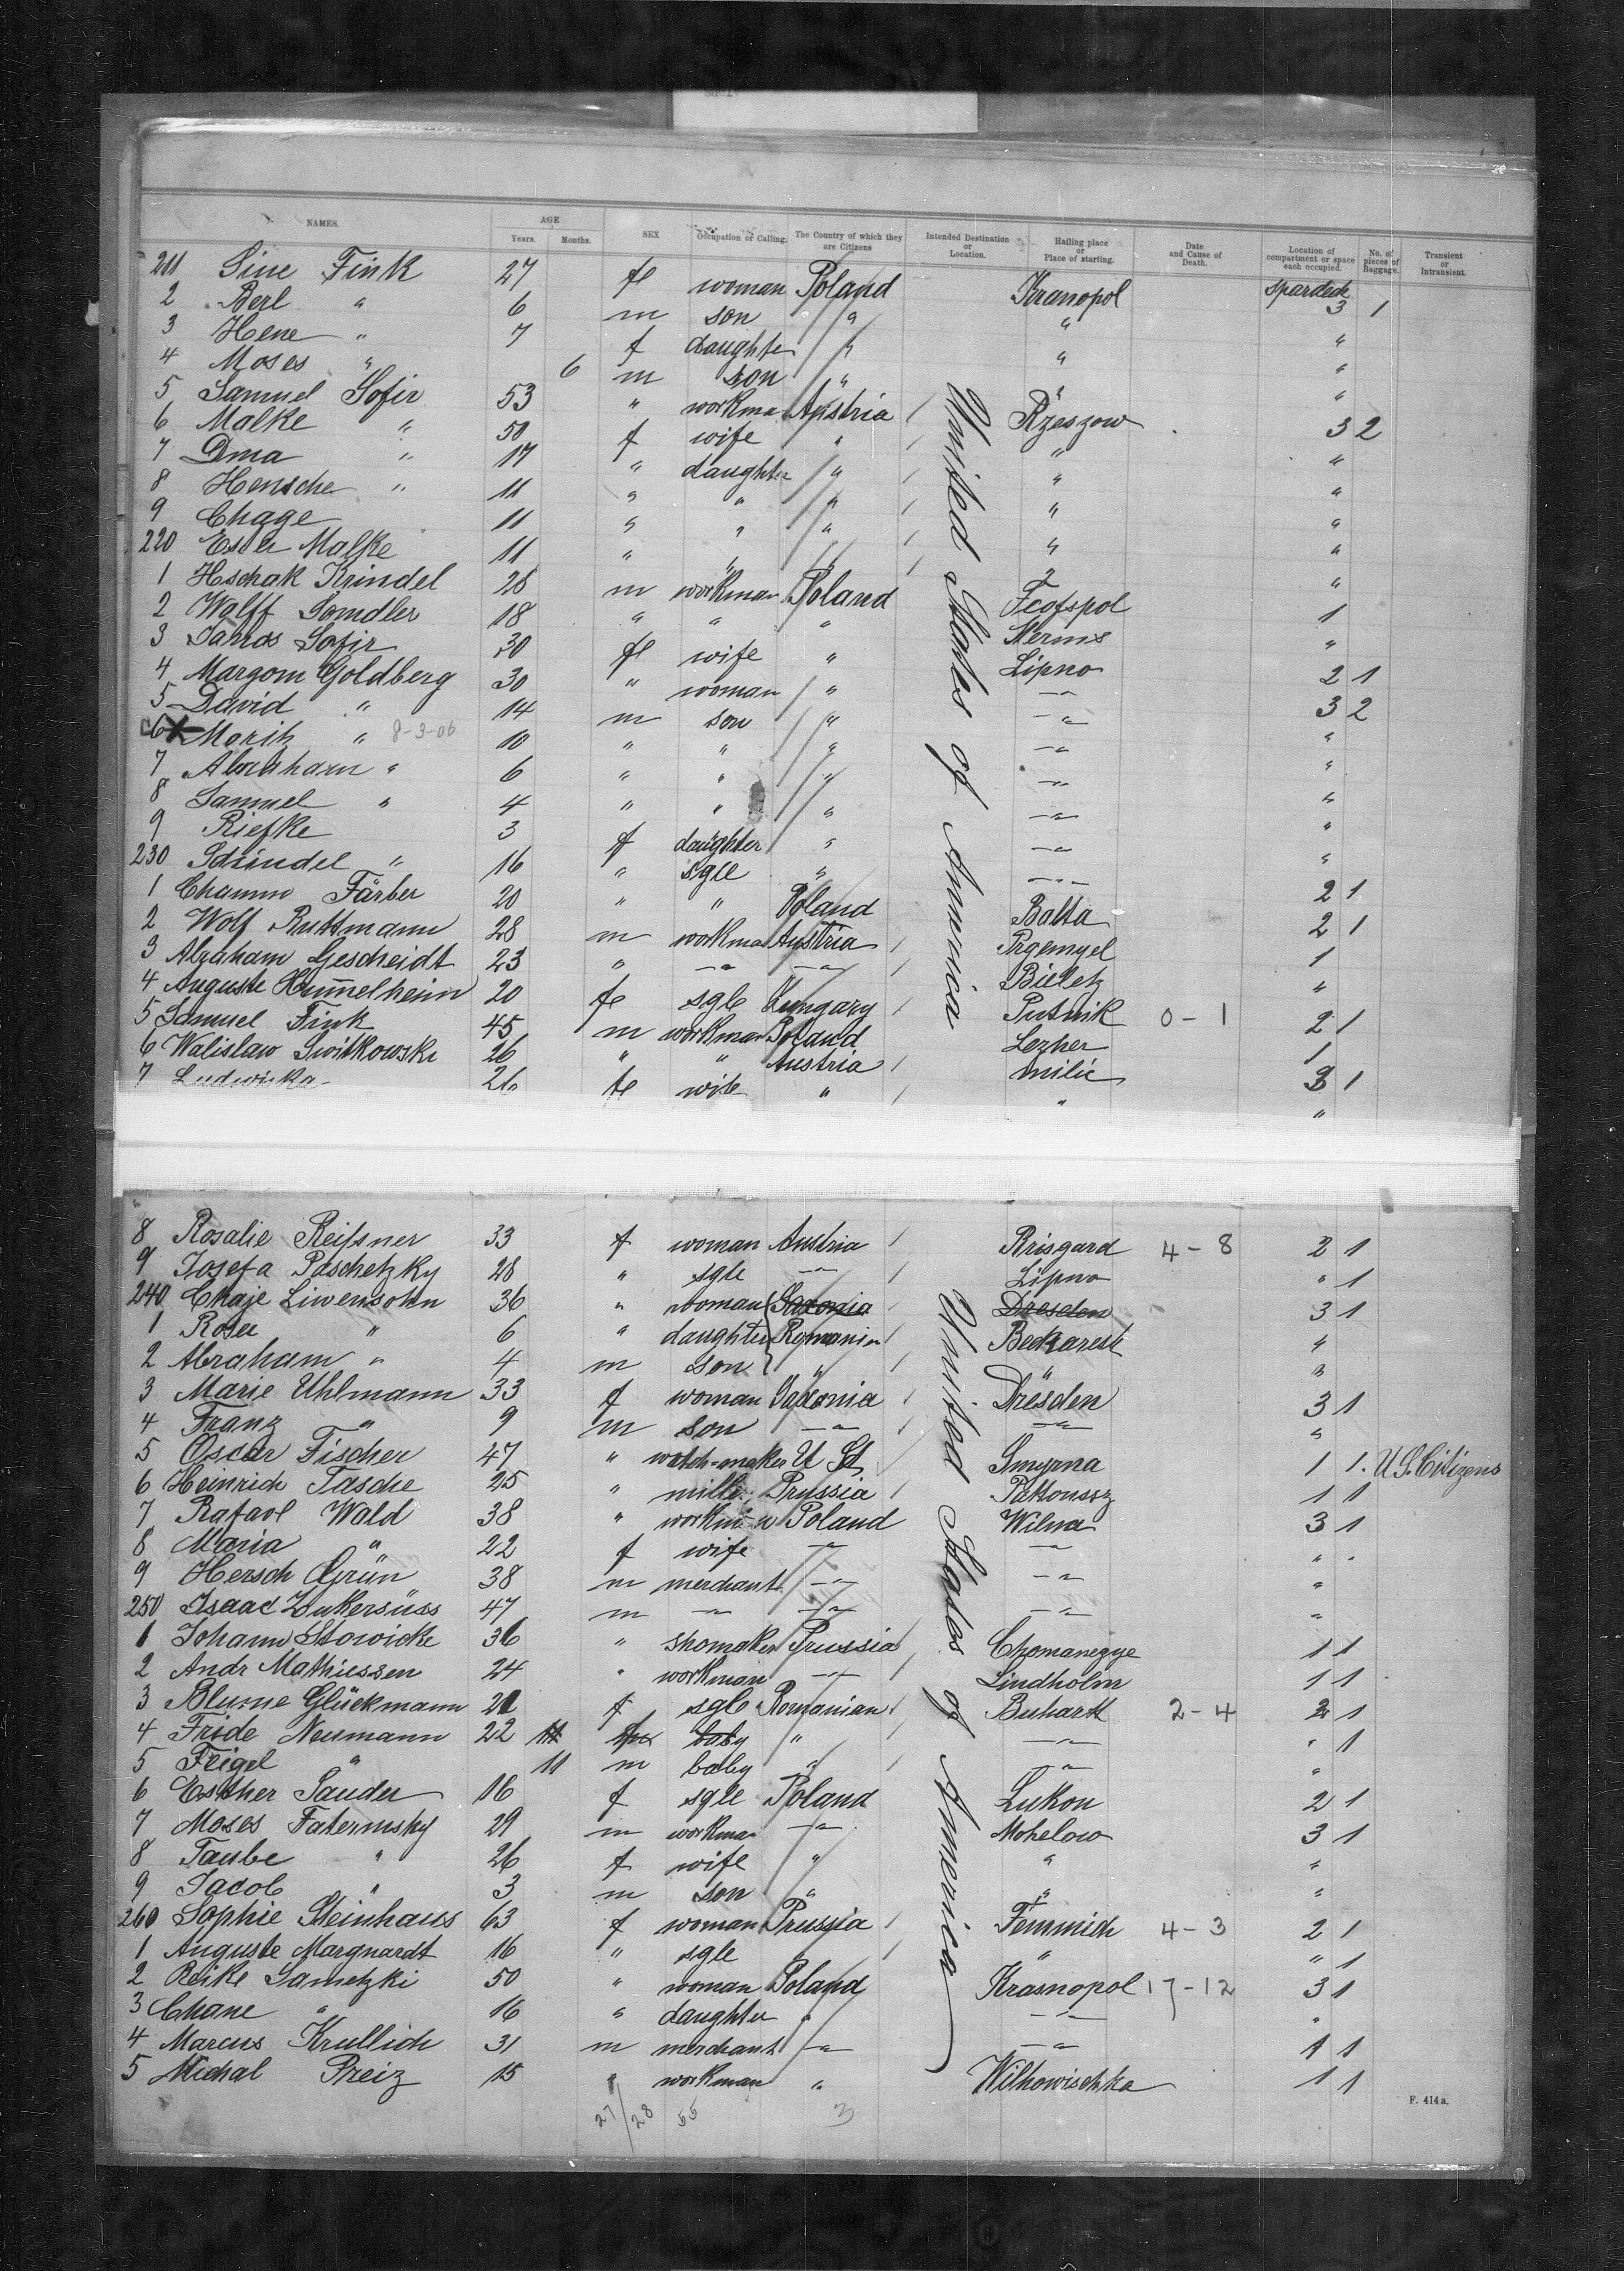 NAMES. AGE Years. Months. SEX Occupation or Calling. The Country of which they are Citizens Intended Destination or Location. Hailing place or Place of starting. Date and Cause of Death. Location of compartment or space each occupied. No. of pieces of Baggage. Transient or Intransient.
211 Sine Fink 27 fe woman Poland Kranopol spardeck 3 1
2 Berl " 6 m son " " "
3 Hene " 7 f daughter " " "
4 Moses " 6 m son " " "
5 Samuel Sofir 53 " workma Austria / Rzeszow 3 2
6 Malke " 50 f wife " / " "
7 Dma " 17 " daughter " / " "
8 Hensche " 11 " " " / " "
9 Chage 11 " " " / " "
220 Ester Malke 11 " " " / " "
1 Hschak Krindel 28 m workman Poland Feofspol 1
2 Wolff Somdler 18 " " " "
3 Sofir 30 fe wife " Lipno 2 1
4 Margom Goldberg 30 " woman " -"- 3 2
5 David " 14 m son " -"- "
c6 X Morih " 8-3-06 10 " " " -"- "
7 Abraham " 6 " " " -"- "
8 Samuel " 4 " " " -"- "
9 Riefke 3 f daughter " -"- "
230 Schindel " 16 " sgle " -"- 2 1
1 Chamm Färber 20 " " Poland Balta 2 1
2 Wolf Ruttmann 28 m workma Austria / Prgemyel 1
3 Abraham Gescheidt 23 " -"- -"- / Bieletz "
4 Auguste Hummelheim 20 fe sgle Hungary / Putnik 0-1 2 1
5 Samuel Fink 45 m workman Poland Lezher 1
6 Walislaw Switkowski 26 " " Austria / milic 3 1
7 Ludwika 26 fe wife " / " "
United States of America
8 Rosalie Reißner 33 f woman Austria / Risgard 4-8 2 1
9 Josefa Paschetzky 28 " sgle -"- / Lipno " 1
240 Chaje Liwensohn 36 " woman Saxonia Dresden 3 1
1 Rosa " 6 " daughter Romania / Beckarest "
2 Abraham " 4 m son " / " "
3 Marie Uhlmann 33 f woman Saxonia / Dresden 3 1
4 Franz " 9 m son -"- / -"- "
5 Oscar Fischer 47 " watch-maker U St. Smyrna 1 1. U.S. Citizens
6 Heinrich Tasche 25 " mille. Prussia / Pakoussz 1 1
7 Rafael Wald 38 " workman Poland Wilna 3 1
8 Maria " 22 f wife -"- -"- "
9 Hersch Grün 38 m merchant -"- -"- "
250 Isaac Zukersüss 47 m -"- -"- -"- "
1 Johann Stowicke 36 " shomaker Prussia / Chomanegye 1 1
2 Andr Mathiessen 24 " workman -"- / Lindholm 1 1
3 Blume Glückmann 21 f sgle Romanian / Buhart 2-4 2 1
4 Fride Neumann 22 11 baby " / -"- " 1
5 Feigel " 11 m baby " / -"- "
6 Esther Sauder 16 f sgle Poland Lukou 2 1
7 Moses Faternsky 29 m workma -"- Mohelow 3 1
8 Taube " 26 f wife " " "
9 Jacob " 3 m son " " "
260 Sophie Steinhaus 63 f woman Prussia / Femmich 4-3 2 1
1 Auguste Margnardt 16 " sgle / " " 1
2 Reike Sametzki 50 " woman Poland Krasnopol 17-12 3 1
3 Chane " 16 " daughter " -"- "
4 Marcus Krullich 31 m merchant -"- -"- 1 1
5 Michal Preiz 15 " workman " Wilkowischka 1 1
United States of America
27/28 55 3
F. 414a.